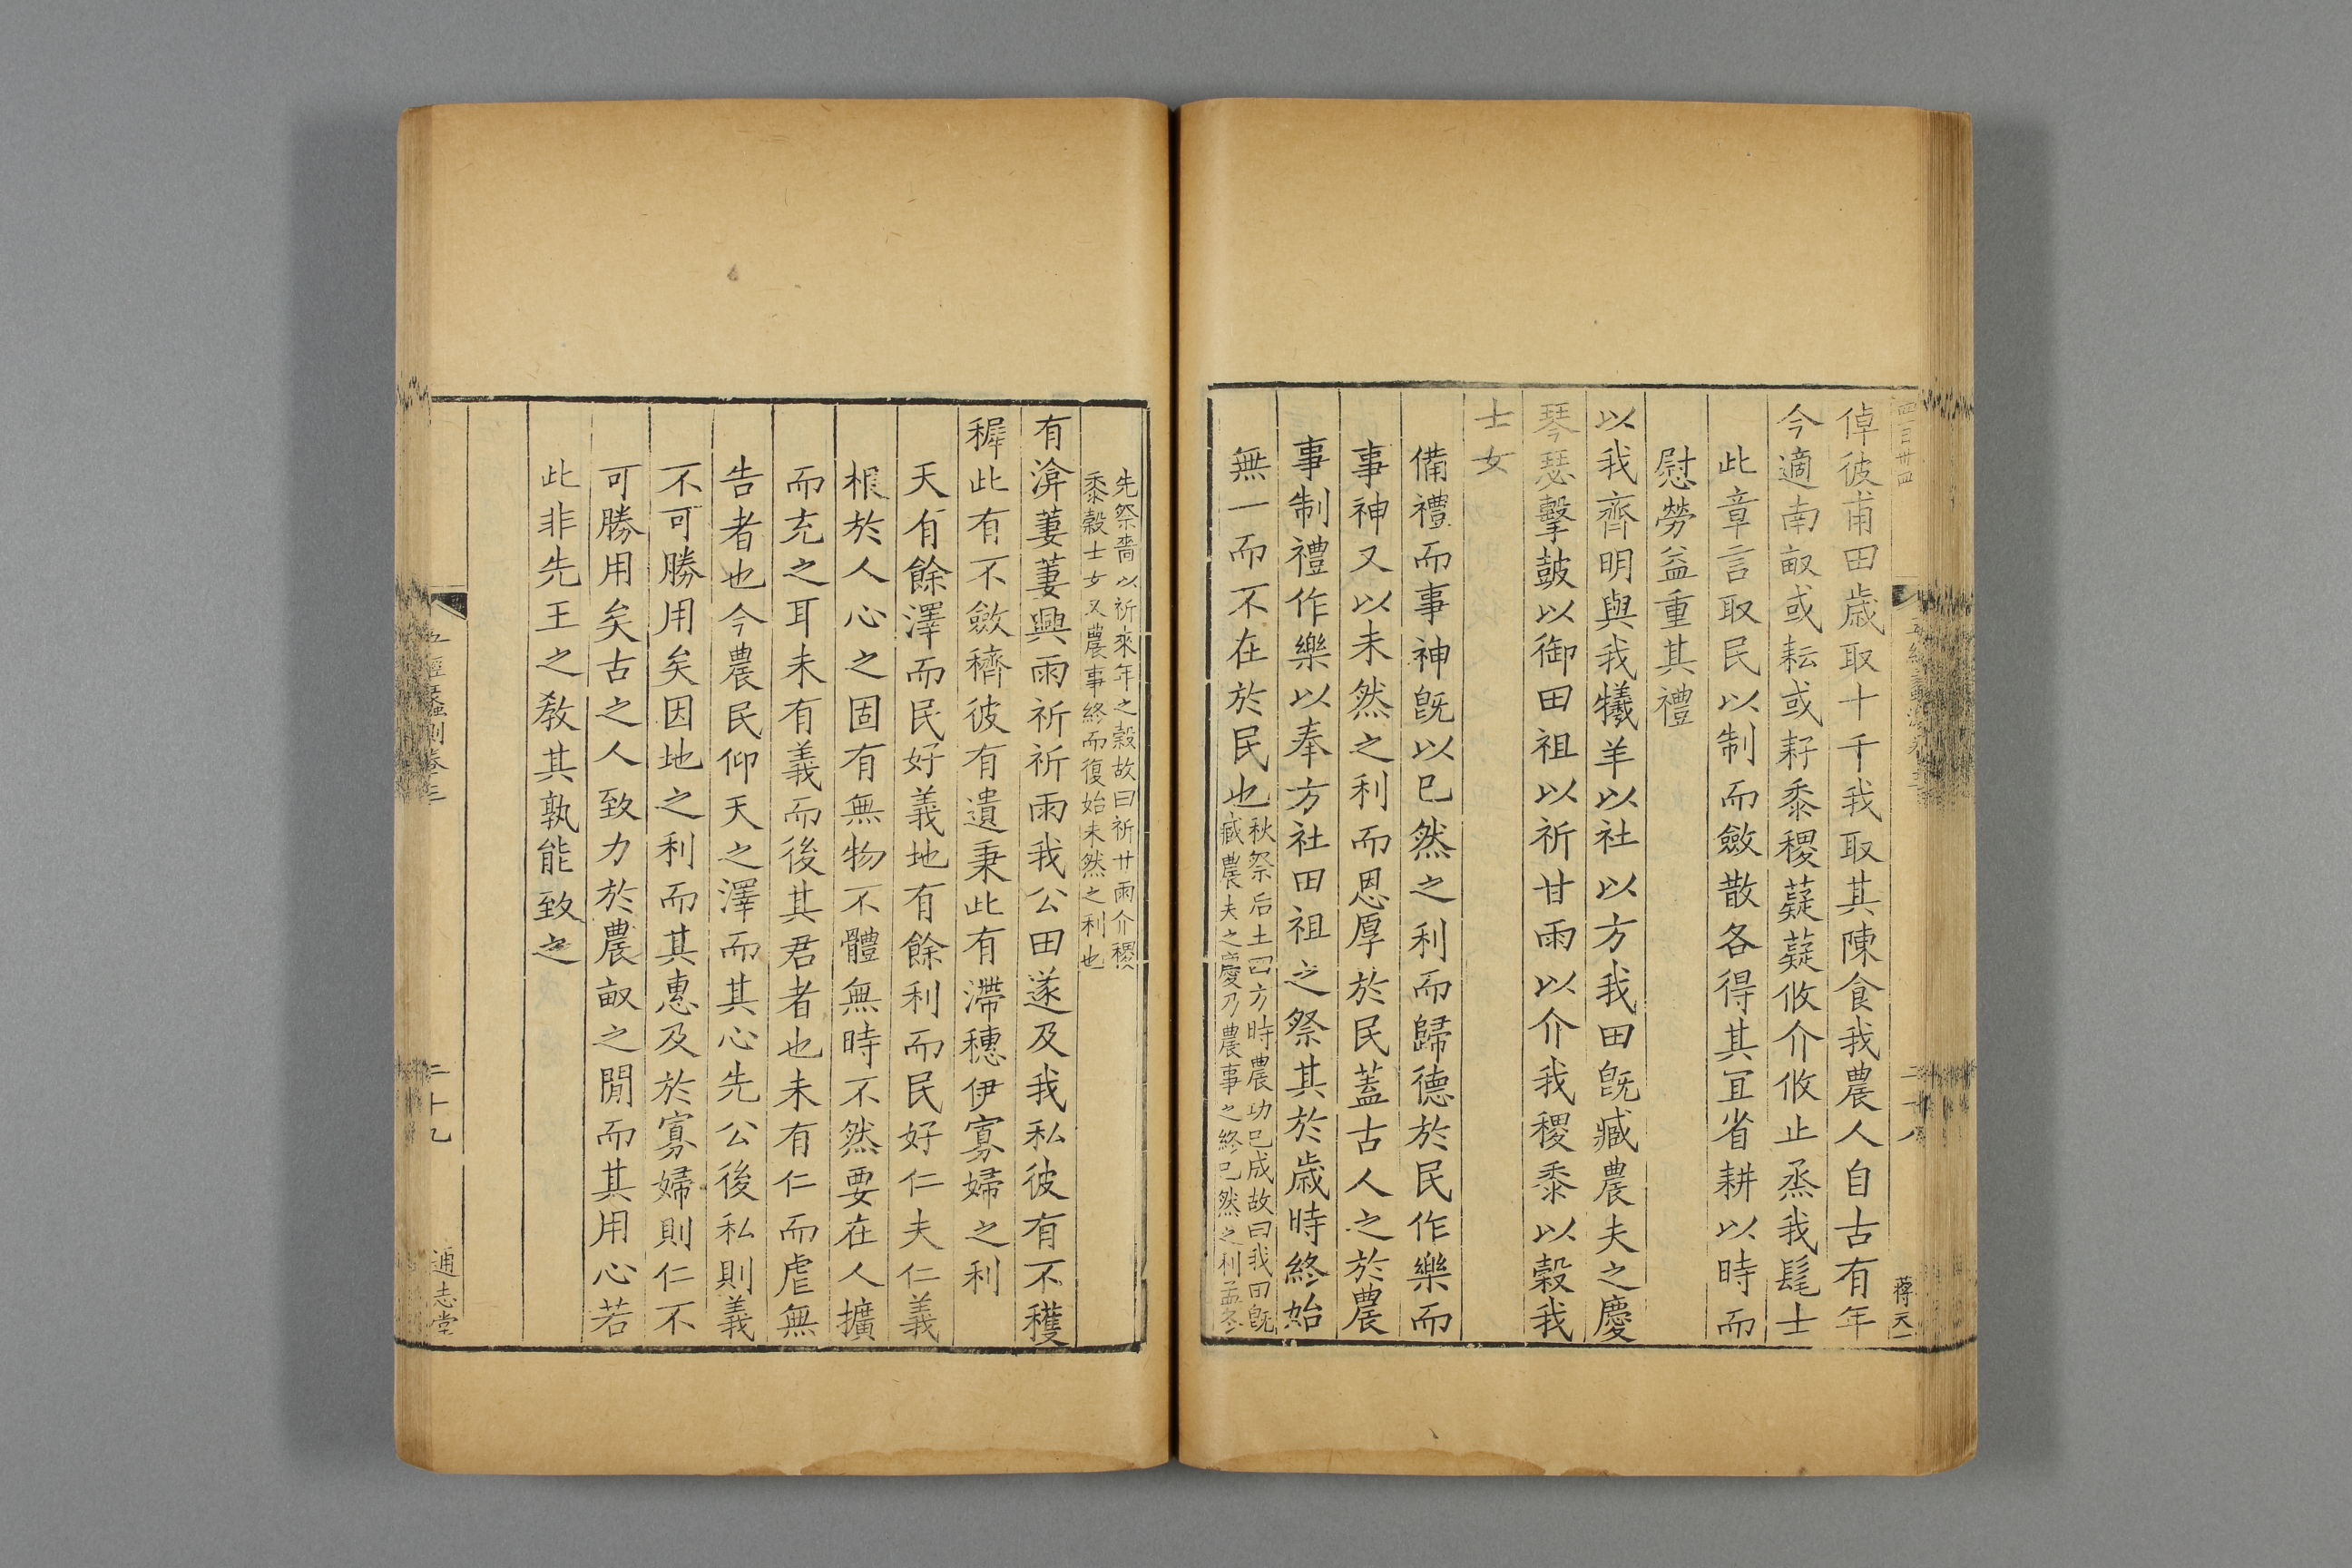 倬彼甫田歲取十千我取其陳食我農人自古有年
今適南畝或耘或耔黍稷薿薿攸介攸止烝我髦士
此章言取民以制而斂散各得其宜省耕以時而
慰勞益重其禮
以我齊明與我犧羊以社以方我田旣臧農夫之慶
琴瑟擊鼓以御田祖以祈甘雨以介我稷黍以穀我
士女
備禮而事神旣以已然之利而歸德於民作樂而
事神又以未然之利而恩厚於民蓋古人之於農
事制禮作樂以奉方社田祖之祭其於歲時終始
無一而不在於民也秋祭后土四方時農功已成故曰我田旣
臧農夫之慶乃農事之終已然之利孟冬
先祭嗇以祈來年之穀故曰祈甘雨介稷
黍穀士女又農事終而復始未然之利也
有渰萋萋興雨祈祈雨我公田遂及我私彼有不穫
穉此有不斂穧彼有遺秉此有滯穗伊寡婦之利
天有餘澤而民好義地有餘利而民好仁夫仁義
根於人心之固有無物不體無時不然要在人擴
而充之耳未有義而後其君者也未有仁而虐無
告者也今農民仰天之澤而其心先公後私則義
不可勝用矣因地之利而其惠及於寡婦則仁不
可勝用矣古之人致力於農畝之閒而其用心若
此非先王之敎其孰能致之
五經蠡測卷三
二十九
通志堂
四百廿四
二十八
蔣天一